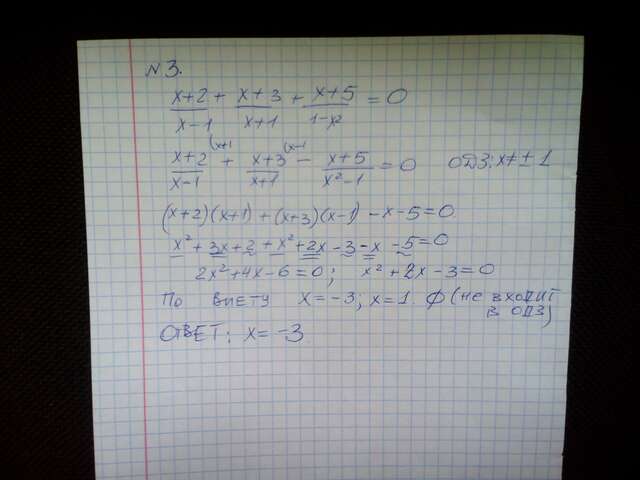 №3.
(x+2)/(x-1) + (x+3)/(x+1) + (x+5)/(1-x²) = 0
(x+2)/(x-1) (x+1 + (x+3)/(x+1) (x-1 - (x+5)/(x²-1) = 0 ОДЗ: x≠±1
(x+2)(x+1)+(x+3)(x-1)-x-5=0
x²+3x+2+x²+2x-3-x-5=0
2x²+4x-6=0; x²+2x-3=0
По Виету x=-3; x=1. ф (не входит
в ОДЗ)
Ответ: x=-3.